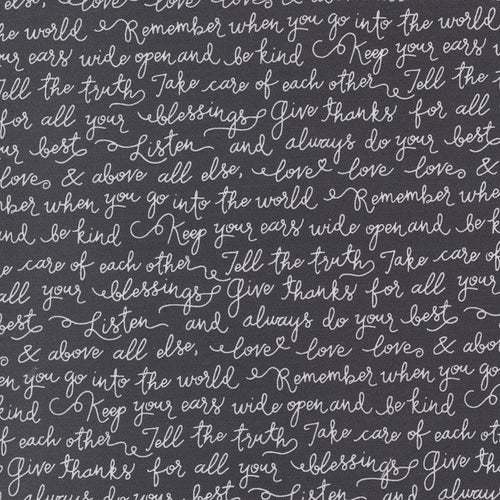 else, love love love & above all
the world Remember when you go into the world
your ears wide open and be kind Keep your ears
Tell the truth Take care of each other Tell the
for all your blessings Give thanks for all
your best Listen and always do your best
love & above all else, love love love &
Remember when you go into the world Remember
and be kind Keep your ears wide open and be
care of each other Tell the truth Take care of
all your blessings Give thanks for all your
best Listen and always do your best
& above all else, love love love &
when you go into the world Remember when you
kind Keep your ears wide open and be kind
of each other Tell the truth Take care of each
Give thanks for all your blessings Give
do your best Listen and always